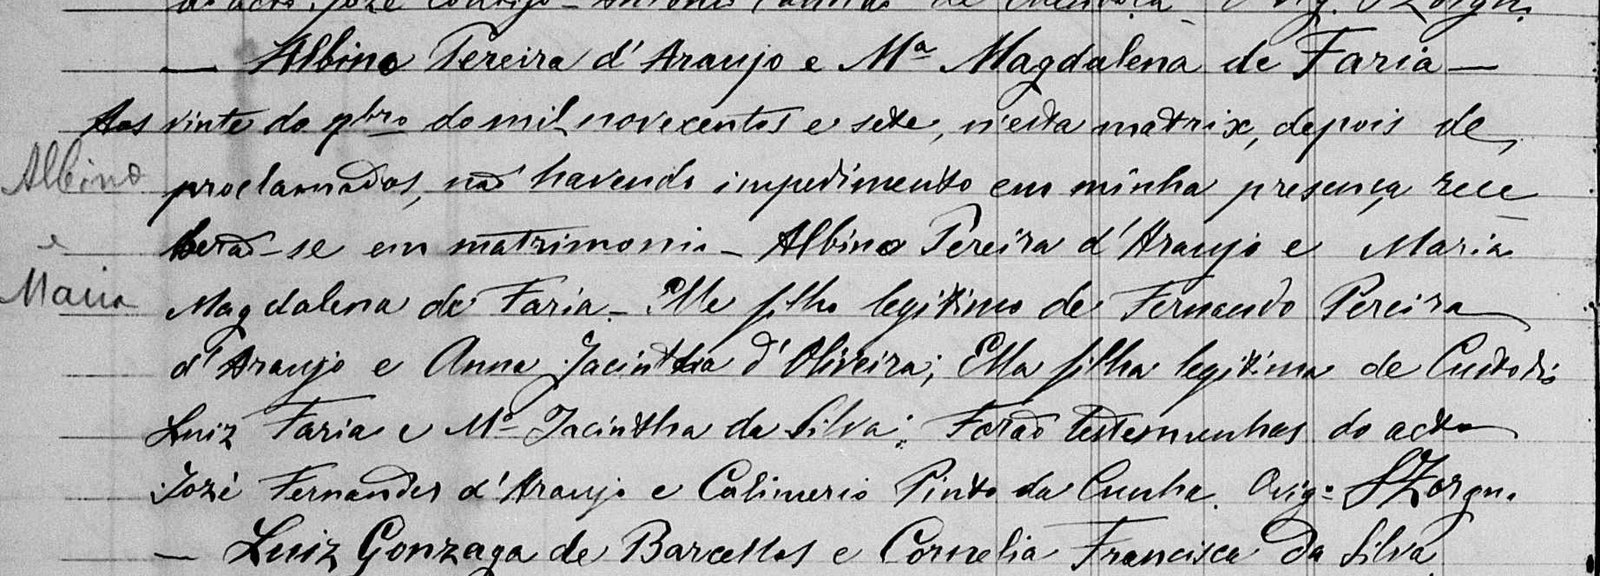 do acto. José Antonio de
— Albino Pereira d'Araujo e Mª Magdalena de Faria —
Aos vinte do 9bro do mil novecentos e sete, n'esta matrix, depois de
Albino
proclamados, não havendo impedimento em minha presença rece
e
berão-se em matrimonio - Albino Pereira d'Araujo e Maria
Maria
Magdalena de Faria - Elle filho legitimo de Fernando Pereira
d'Araujo e Anna Jacintha d'Oliveira; Ella filha legitima de Custodio
Luiz Faria e Mª Jacintha da Silva; Forão testemunhas do acto
José Fernandes d'Araujo e Calimerio Pinto da Cunha. O vigº
— Luiz Gonzaga de Barcellos e Cornelia Francisca da Silva